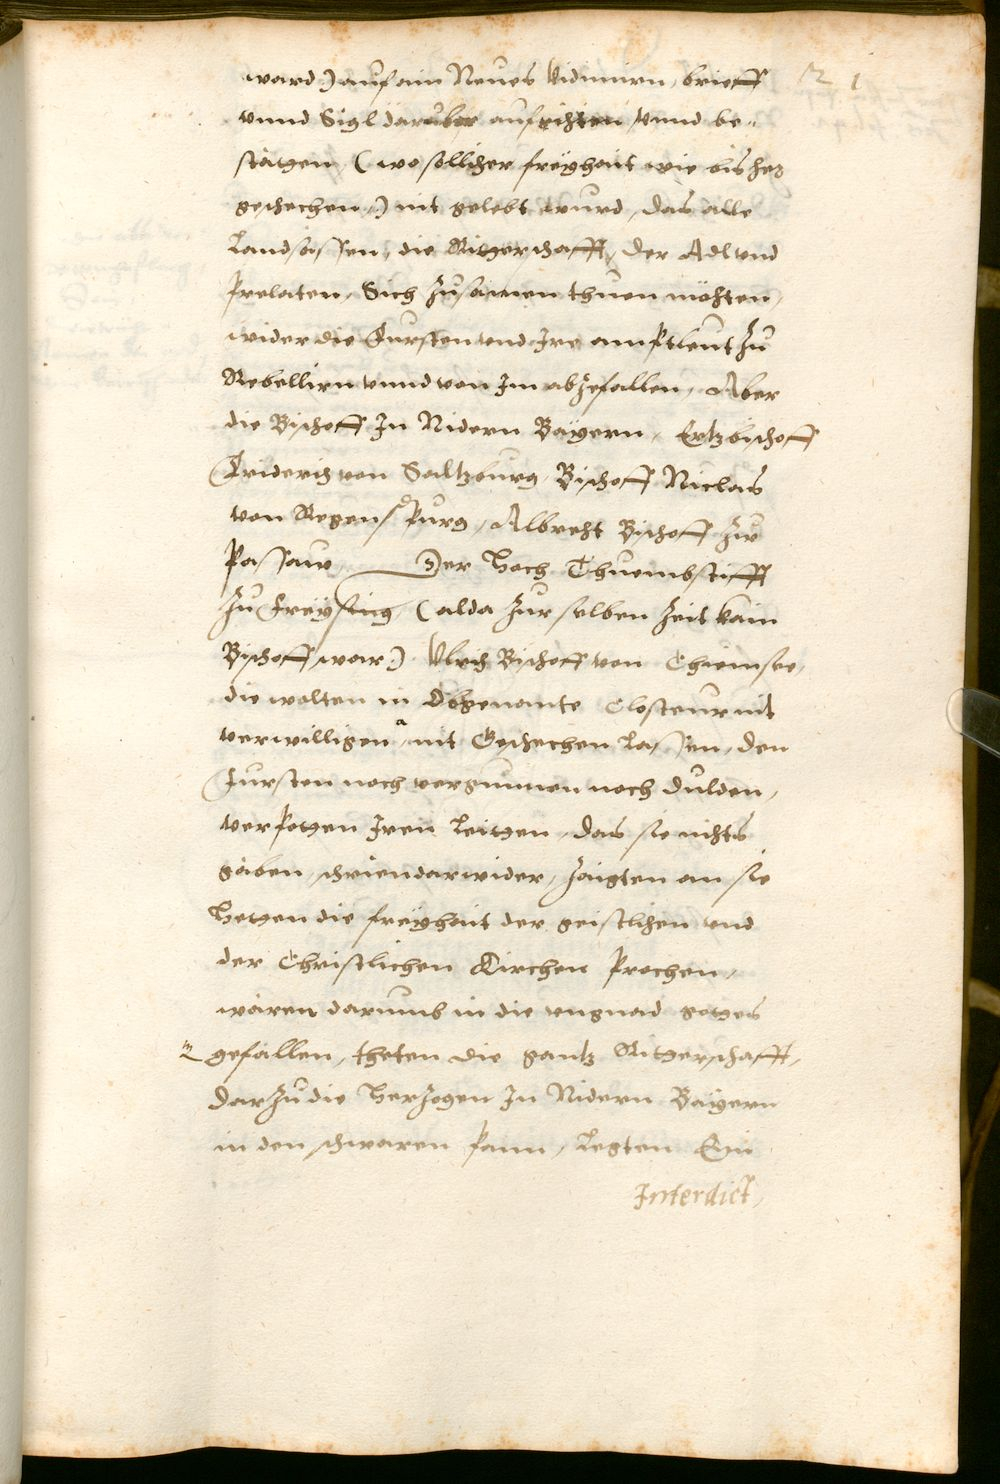 ward) auf ain Neues Vidimirn, brieff
vnnd Sigl darüber aufrichten, vnnd be-
stätgen, (wo sollicher freyhait wie bis her
geschechen,) nit gelebt wurd, das alle
Landsässen, die Ritterschafft, der Adl vnd
Prelaten, Sich zusamen thuen möchten,
wider die Fürsten vnd Ire amptleut zu
Rebellirn vnnd von Im abzefallen, Aber
die Bischoff In Nidern Bayern, Ertzbischoff
Friderich von Saltzburg, Bischoff Niclas
von Regenspurg, Albrecht Bischoff zu
Passaw, Der Hoch Thuembstifft
zu Freysing, (alda zur selben Zeit kain
Bischoff war) Vlrich Bischoff von Chiemsee,
die wolten in Obgenante Clösteur nit
verwilligen, nit Geschechen Lassen, den
Fürsten noch vergunnen noch dulden,
verpotten Iren Leitten, das sie nichts
gäben, schrien darwider, zaigten an sie
Hetten die freyhait der geistlichen vnd
der Christlichen Kirchen Prochen,
wären darumb in die vngnad gottes
gefallen, theten die gantz Ritterschafft,
darzu die Herzogen In Nidern Bayern
in den schwären Pann, Legten Ein
Interdict,